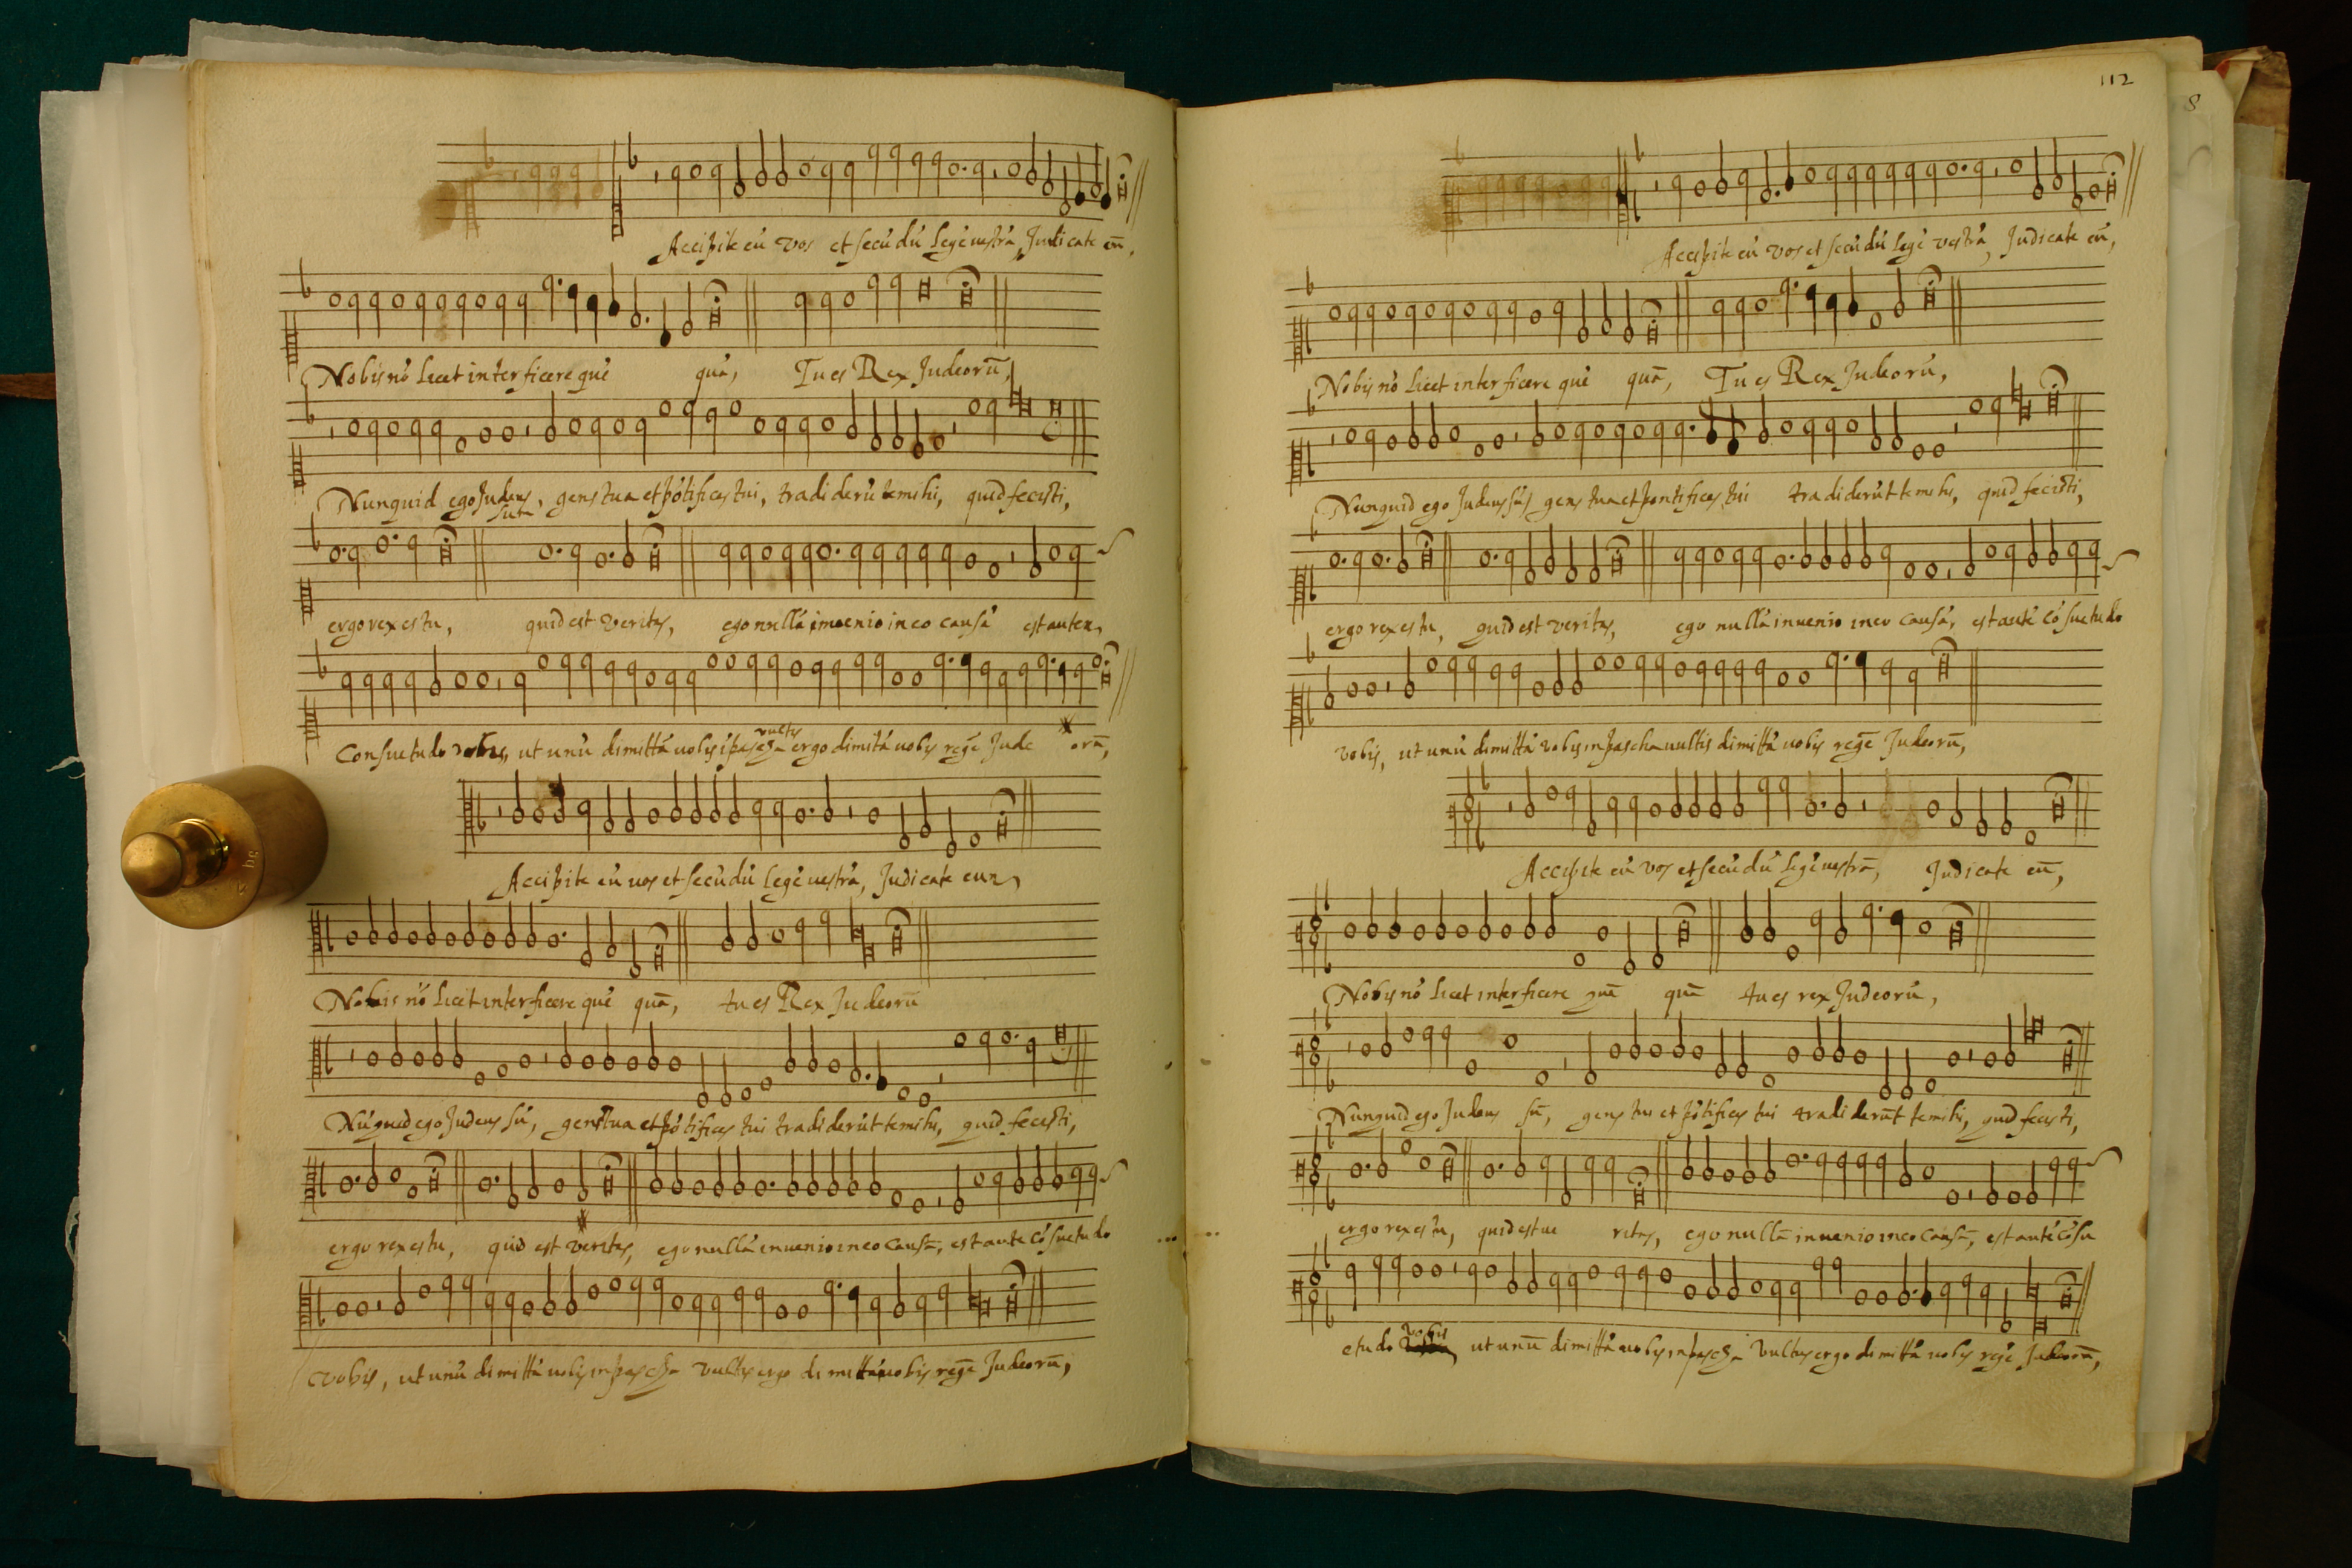 Accipite eū vos et secūdū legē vestrā, Judicate eū,
Nobis nō licet interficere quē quā, Tu es Rex Judeorū,
Nunquid ego Judeus, gens tua et pōtifices tui, tradiderūt te mihi, quid fecisti,
sum
ergo rex es tu, quid est veritas, ego nullā invenio in eo causā est autem
vultis
Consuetudo vobis, ut unū dimittā vobis ī pascha ergo dimitā vobis regē Jude orū,
Accipite eū vos et secūdū legē vestrā, Judicate eum,
Nobis nō licet interficere quē quā, tu es Rex Judeorū
Nūquid ego Judeus sū, gens tua et pōtifices tui tradiderūt te mihi, quid fecisti,
ergo rex es tu, quid est veritas, ego nullā invenio in eo causā, est autē cōsuetudo
vobis, ut unū dimittā vobis in pascha vultis ergo dimittā vobis regē Judeorū,
112
8
Accipite eū vos et secūdū legē vestrā, Judicate eū,
Nobis nō licet interficere quē quā, Tu es Rex Judeorū,
Nunquid ego Judeus sū, gens tua et pontifices tui tradiderūt te mihi, quid fecisti,
ergo rex es tu, quid est veritas, ego nullā invenio in eo causā, est autē cōsuetudo
vobis, ut unū dimittā vobis in pascha vultis dimittā vobis regē Judeorū,
Accipite eū vos et secūdū legē vestrā, Judicate eū,
Nobis nō licet interficere quē quā tu es rex Judeorū,
Nunquid ego Judeus sū, gens tua et pōtifices tui tradiderūt te mihi, quid fecisti,
ergo rex es tu, quid est ve ritas, ego nullā invenio in eo causā, est autē cōsu
vobis
etudo ut unū dimittā vobis in pascha vultis ergo dimittā vobis regē Judeorū,